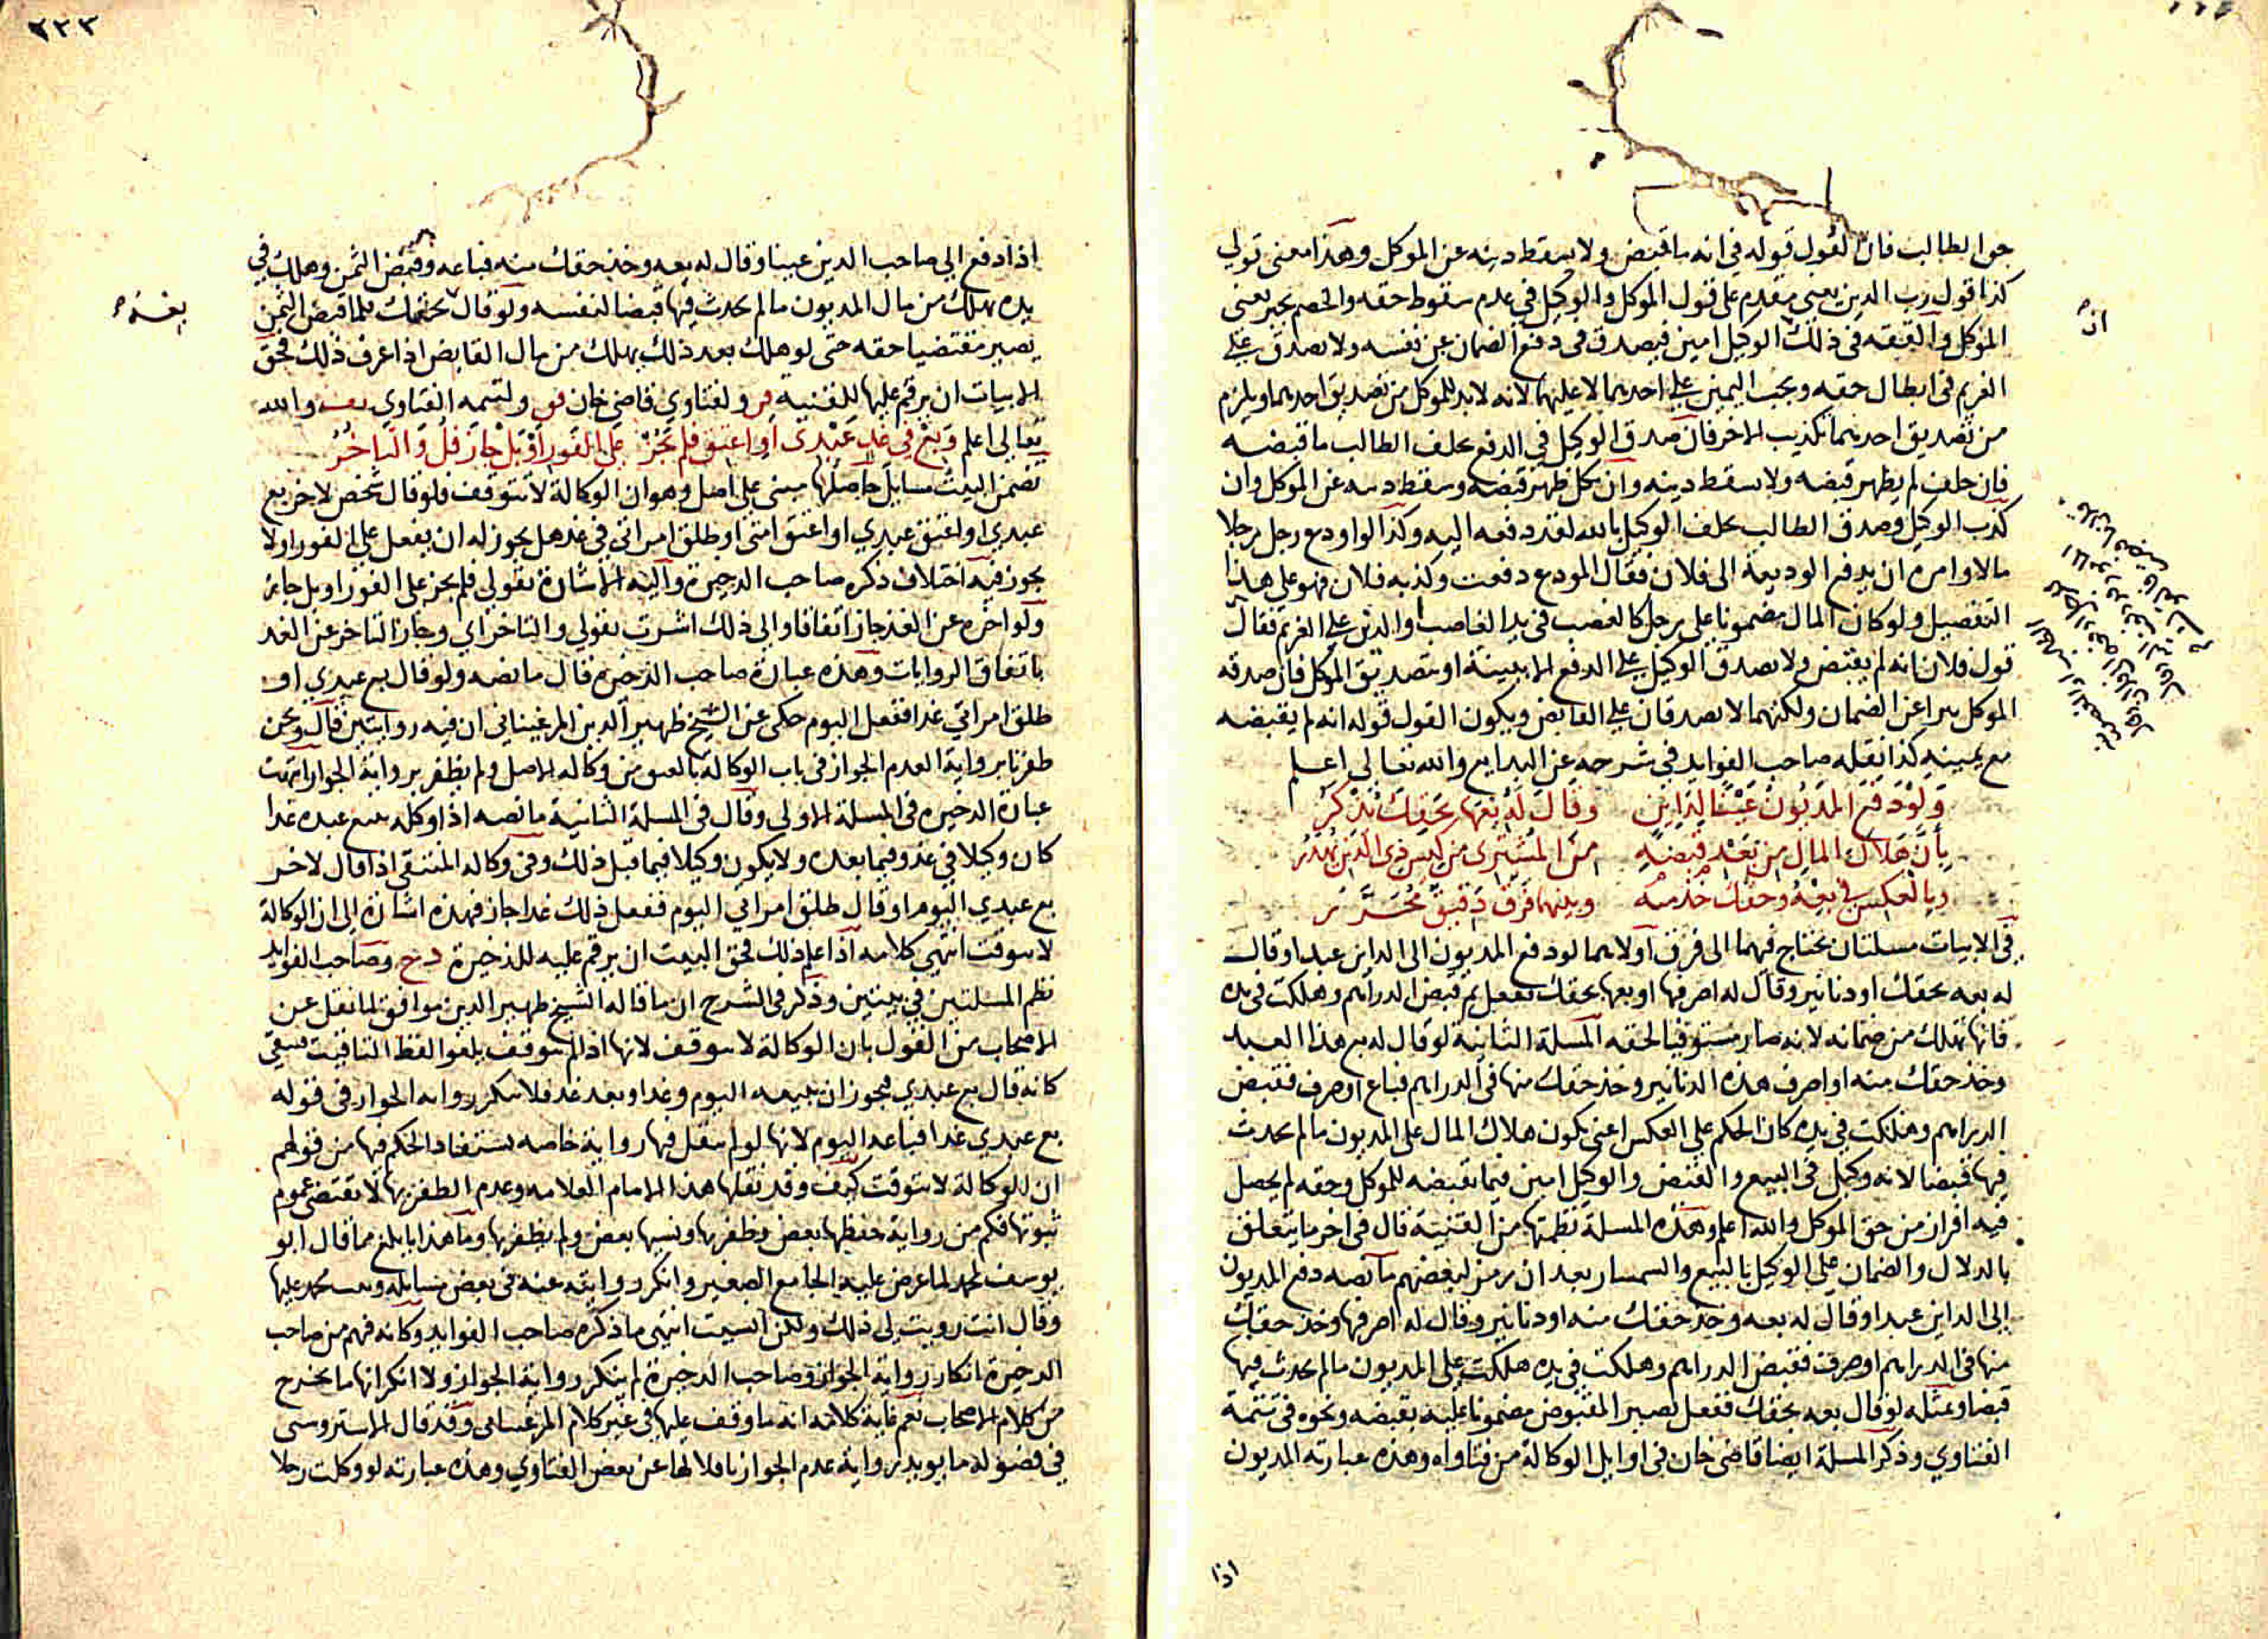 حق الطالب فان القول قوله في انه ما قبض ولا يسقط دينه عن الموكل وهذا معنى قولي
كذا قول رب الدين يعني مقدم على قول الموكل والوكيل في عدم سقوط حقه والخصم يخير يعني
الموكل والفقه في ذلك ان الوكيل امين فيصدق في دفع الضمان عن نفسه ولا يصدق على
الغريم في ابطال حقه ويجب اليمين على احدهما لا عليهما لانه لابد للموكل من تصديق احدهما ويلزم
من تصديق احدهما تكذيب الاخر فان صدق الوكيل في الدفع يحلف الطالب ما قبضه
فان حلف لم يظهر قبضه ولا سقط دينه وان نكل ظهر قبضه وسقط دينه عن الموكل وان
كذب الوكيل وصدق الطالب يحلف الوكيل بالله لقد دفعه اليه وكذا لو اودع رجل رجلا
مالا وامره ان يدفع الوديعة الى فلان فقال المودع دفعت وكذبه فلان فهو على هذا
التفصيل ولو كان المال مضمونا على رجل كالغصب في يد الغاصب والدين على الغريم فقال
قول فلان انه لم يقبض ولا يصدق الوكيل على الدفع الا ببينة او بتصديق الموكل فان صدقه
الموكل برا عن الضمان ولكنهما لا يصدقان على القابض ويكون القول قوله انه لم يقبضه
مع يمينه كذا نقله صاحب الفوايد في شرحه عن البدايع والله تعالى اعلم
وَلَوْ دَفَعَ المَدْيُونُ عَيْنًا لِدَاينٍ وقَالَ لَهُ بعها بحقك يُذْكَرُ
بأنَّ هَلَاكَ المال من بَعْدِ قبضِهِ من المُشْتَرِى من كيسِ ذِى الدَين يُهْدَرُ
وبالعكس في بِعْهُ وحقك خذ منه وبينهما فَرْقٌ دَقِيقٌ مُحَرَّرُ
في الابيات مسلتان يحتاج فيهما الى فرق اولاهما لو دفع المديون الى الداين عبدا وقال
له بعه بحقك او دنانير وقال له اصرفها او بعها بحقك ففعل ثم قبض الدراهم وهلكت في يده
فانها تهلك من ضمانه لانه صار مستوفيا لحقه المسلة الثانية لو قال له بع هذا العبد
وخذ حقك منه او اصرف هذه الدنانير وخذ حقك منها في الدراهم فباع او صرف فقبض
الدراهم وهلكت في يده كان الحكم على العكس اعني يكون هلاك المال على المديون ما لم يحدث
فيها قبضا لانه وكيل في البيع والقبض والوكيل امين فيما يقبضه للموكل وحقه لم يحصل
فيه افراز من حق الموكل والله اعلم وهذه المسلة نظمتها من القنية قال في اخر ما يتعلق
بالدلال والضمان على الوكيل بالبيع والسمسار بعد ان رمز لبعضهم ما نصه دفع المديون
الى الداين عبدا وقال له بعه وخذ حقك منه او دنانير وقال له اصرفها وخذ حقك
منها في الدراهم او صرف فقبض الدراهم وهلكت في يده هلكت على المديون ما لم يحدث فيها
قبضا وبمثله لو قال بعه بحقك ففعل يصير المقبوض مضمونا عليه بقبضه ونحوه في تتمة
الفتاوي وذكر المسلة ايضا قاضى خان في اوايل الوكالة من فتاواه وهذه عبارته المديون
اذا
ان
٢٢٣
اذا دفع الي صاحب الدين عينا وقال له بعه وخذ حقك منه فباعه وقبض الثمن وهلك في
يده يهلك من مال المديون ما لم يحدث فيها قبضا لنفسه ولو قال بحقك فلما قبض الثمن
يصير مقتضيا حقه حتى لو هلك بعد ذلك يهلك من مال القابض اذا عرف ذلك فحق
الابيات ان يرقم عليها للقنيه ولفتاوي قاضي خان ولتتمه الفتاوي والله
تعالى اعلم وَبِعْ في غَدٍ عَبْدِى أو اعتق فلم يَجُزْ على الفَورِ أوْ بَلْ جازَ قل والتاخُّرُ
تضمن البيت مسايل حاصلها مبنى على اصل وهو ان الوكالة لا تتوقف فلو قال شخص لاخر بع
عبدي او اعتق عبدي او اعتق امتى او طلق امراتي في غد هل يجوز له ان يفعل على الفور او لا
يجوز فيه اختلاف ذكره صاحب الدخيرة واليه الاشارة بقولي فلم يجز على الفور او بل جاز
ولو اخره عن الغد جاز اتفاقا والى ذلك اشرت بقولي والتاخر اي وجاز التاخر عن الغد
باتفاق الروايات وهذه عبارة صاحب الذخيره قال ما نصه ولو قال بع عبدي او
طلق امراتي غدا ففعل اليوم حكى عن الشيخ ظهير الدين المرغيناني ان فيه روايتين قال ونحن
ظفرنا برواية العدم الجواز في باب الوكالة بالعتق من وكاله الاصل ولم يظفر برواية الجواز انتهت
عبارة الدخيره في المسلة الاولى وقال في المسلة الثانية ما نصه اذا وكله ببيع عبده غدا
كان وكيلا في غد وفيما بعده ولا يكون وكيلا فيما قبل ذلك وفي وكاله المنتقى اذا قال لاخر
بع عبدي اليوم او قال طلق امراتي اليوم ففعل ذلك غدا جاز فهذه اشارة الى ان الوكالة
لا تتوقت انتهى كلامه اذا علم ذلك فحق البيت ان يرقم عليه للذخيرة وصاحب الفوايد
نظم المسلتين في بيتين وذكر في الشرح ان ما قاله الشيخ ظهير الدين موافق لما نقل عن
الاصحاب من القول بان الوكالة لا تتوقف لانها اذا لم تتوقف يلغو لفظ التاقيت فبقي
كانه قال بع عبدي فيجوز ان يبيعه اليوم وغدا وبعد غد فلا تنكر روايه الجواز في قوله
بع عبدي غدا فباعه اليوم لانها لو لم ينقل فيها رواية خاصه يستفاد الحكم فيها من قولهم
ان الوكالة لا تتوقت كيف وقد نقلها هذا الامام العلامه وعدم الظفر بها لا يقتضى عموم
ثبوتها فكم من رواية حفظها بعض وظفر بها ونسيها بعض ولم يظفر بها وما هذا بابلغ مما قال ابو
يوسف لمحمد لما عرض عليه الجامع الصغير وانكر روايته عنه في بعض مسايله محمد عليها
وقال انت رويت لي ذلك ولكن انسيت انتهى ما ذكره صاحب الفوايد وكانه فهم من صاحب
الدخيرة انكار رواية الجواز وصاحب الدخيرة لم ينكر رواية الجواز ولا انكرانها ما يخرج
من كلام الاصحاب نعم غاية كلامه انه ما وقف عليها في غير كلام المرغيناني وقد قال الاستروسنى
في فصوله ما يويد رواية عدم الجواز ناقلا لها عن بعض الفتاوي وهذه عبارته لو وكلت رجلا